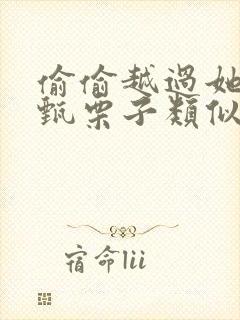 偷偷越過她
甄栗子類似
宿命lii